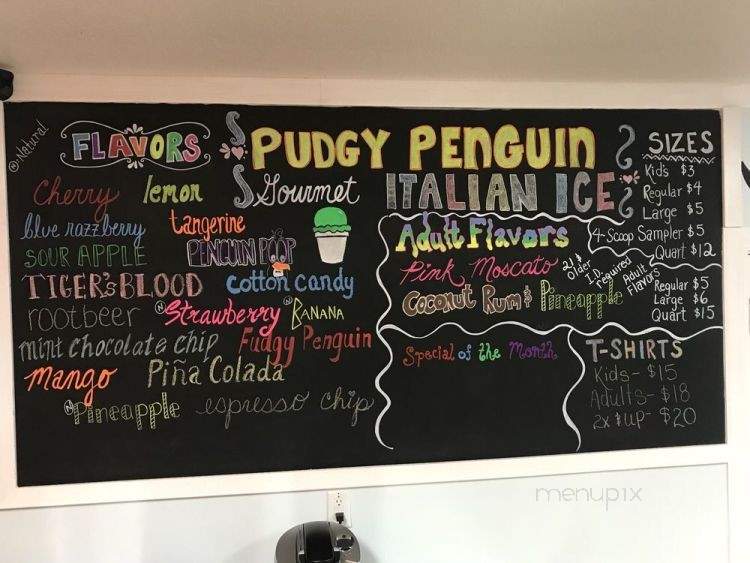 Ⓝ Natural
FLAVORS
PUDGY PENGUIN
Gourmet ITALIAN ICE
Cherry lemon
blue razzberry tangerine
SOUR APPLE PENGUIN POOP
TIGER'S BLOOD cotton candy
rootbeer Ⓝ Strawberry Ⓝ BANANA
mint chocolate chip Fudgy Penguin
mango Piña Colada
Ⓝ Pineapple espresso chip
Adult Flavors
Pink Moscato
Coconut Rum & Pineapple
21 & older
I.D. required
Special of the Month
SIZES
Kids $3
Regular $4
Large $5
4-Scoop Sampler $5
Quart $12
Adult Flavors
Regular $5
Large $6
Quart $15
T-SHIRTS
Kids- $15
Adults- $18
2x & up- $20
menupix